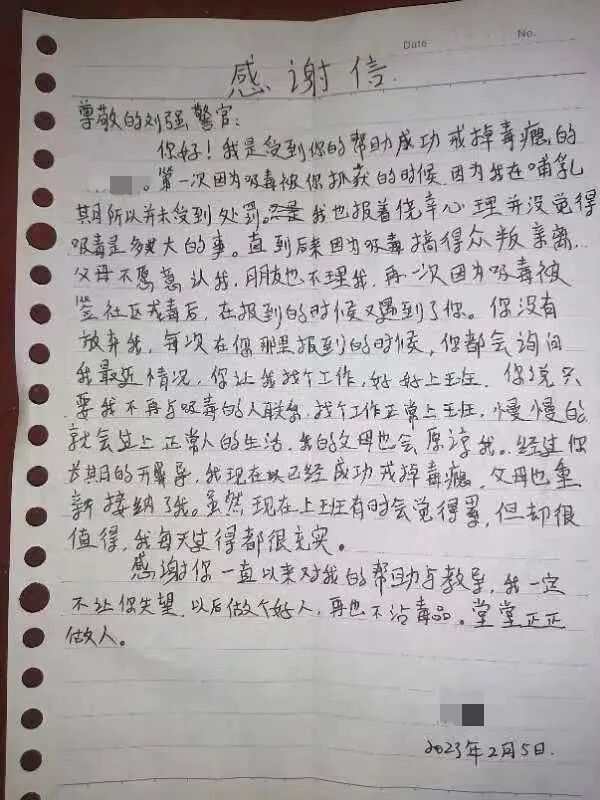 Date
No.
感谢信.
尊敬的刘强警官:
你好!我是受到你的帮助成功戒掉毒瘾的
。第一次因为吸毒被你抓获的时候因为我在哺乳
期所以并未受到处罚。我也报着侥幸心理并没觉得
吸毒是多大的事。直到后来因为吸毒搞得众叛亲离.
父母不愿意认我,朋友也不理我,再一次因为吸毒被
社区戒毒后,在报到的时候又遇到了你。你没有
放弃我,每次在你那里报到的时候,你都会询问
我最近情况,你让我找个工作,好好上班.你说只
要我不再与吸毒的人联系,找个工作正常上班,慢慢的
就会过上正常人的生活,我的父母也会原谅我。经过你
长期的开导,我现在已经成功戒掉毒瘾,父母也重
新接纳了我。虽然现在上班有时会觉得累,但却很
值得,我每天过得都很充实。
感谢你一直以来对我的帮助与教导,我一定
不让你失望.以后做个好人,再也不沾毒品。堂堂正正
做人。
2023年2月5日.